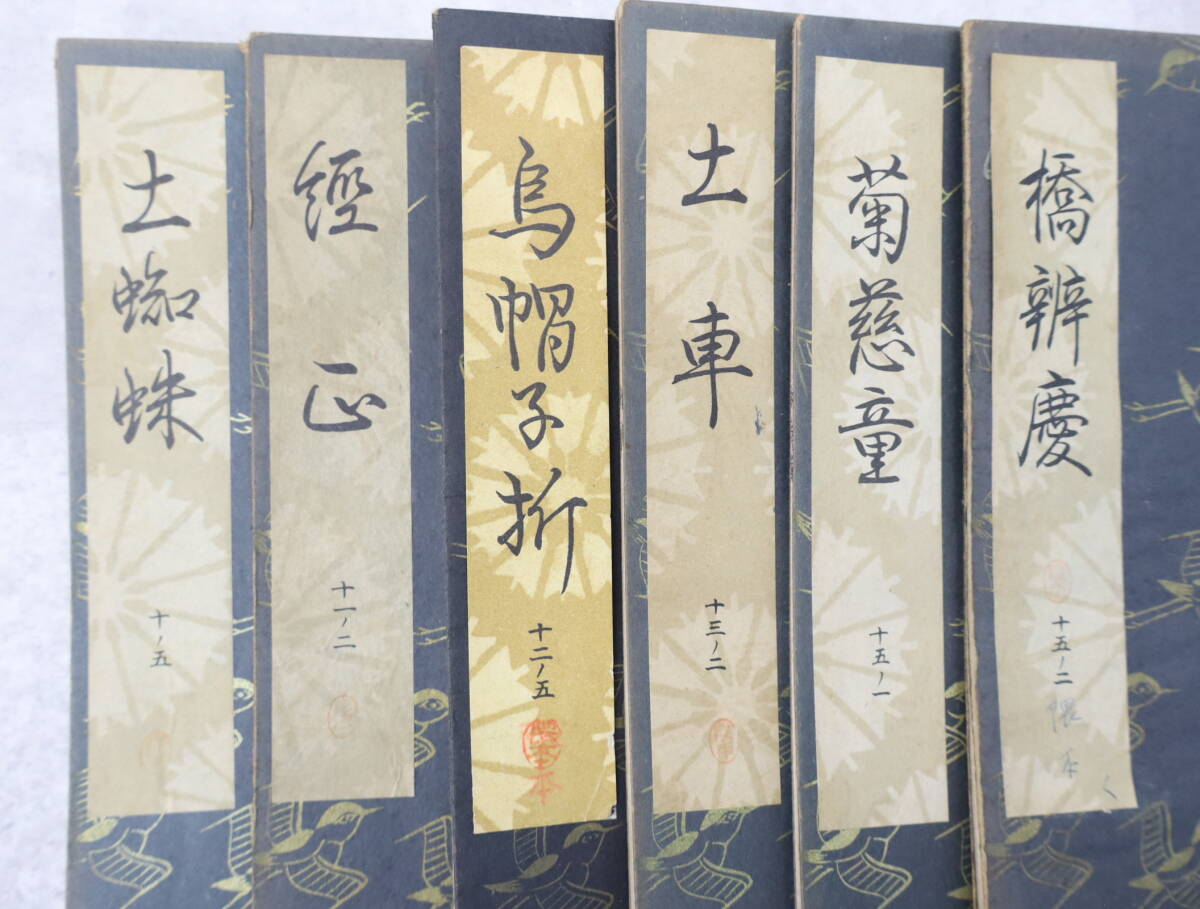 橋辨慶
十五ノ二
菊慈童
十五ノ一
土車
十三ノ二
烏帽子折
十二ノ五
經正
十一ノ二
土蜘蛛
十ノ五